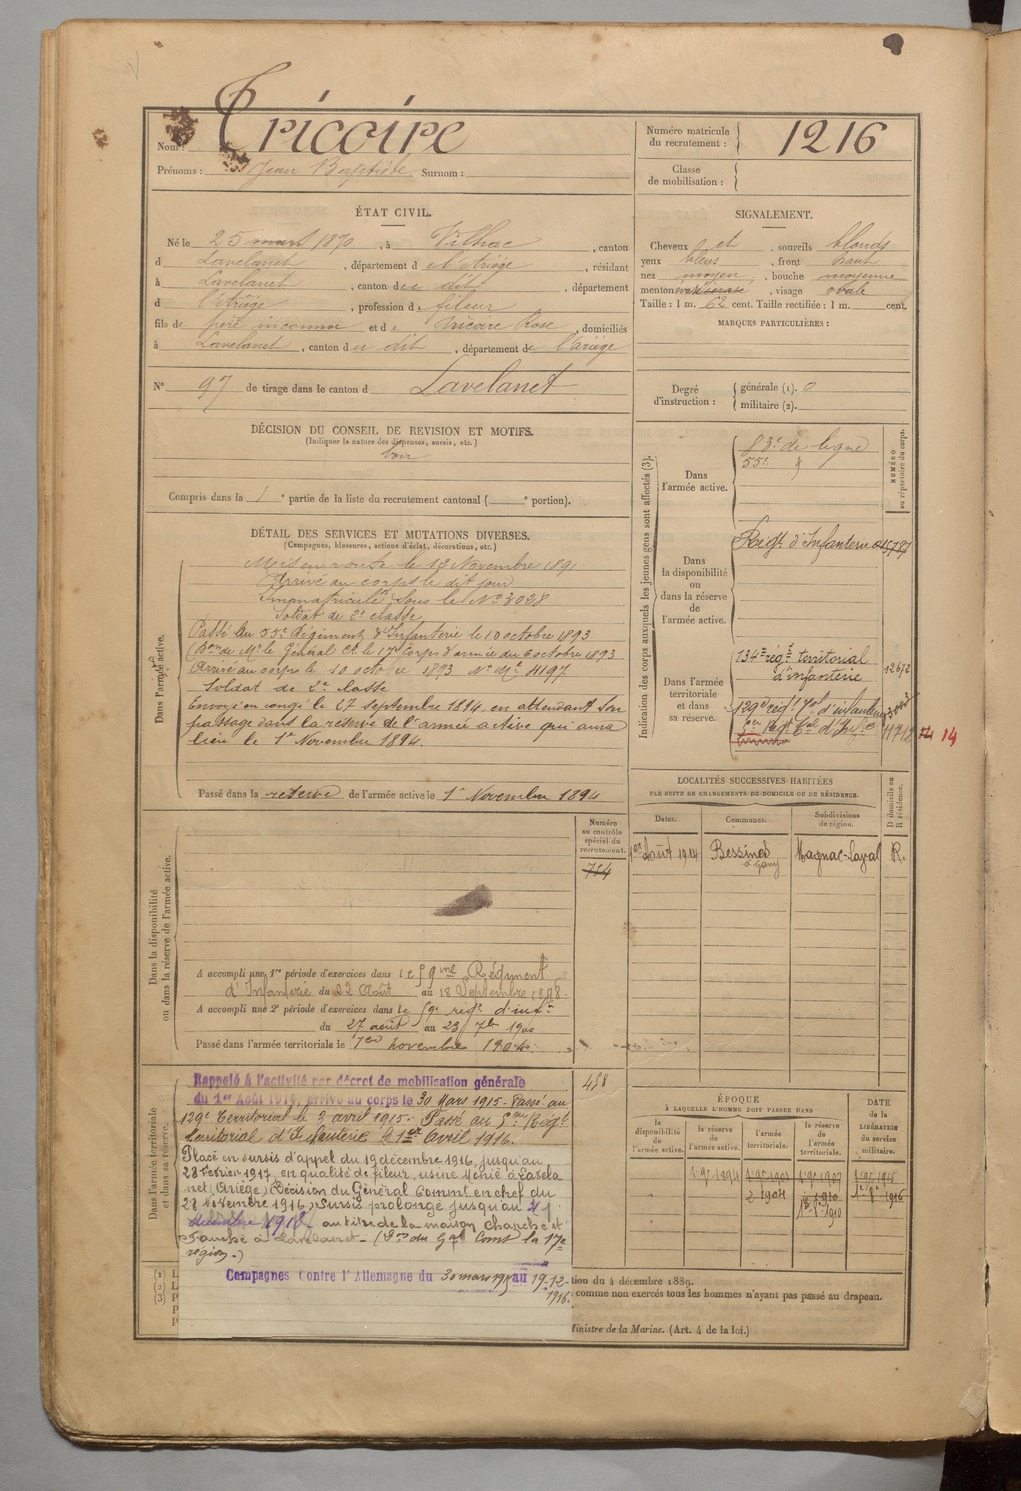 Nom : Tricoire
Prénoms : Jean Baptiste Surnom :
Numéro matricule du recrutement : 1216
Classe de mobilisation :
ÉTAT CIVIL.
Né le 25 mars 1870, à Vilhac, canton
d Lavelanet, département d e l'Ariège, résidant
à Lavelanet, canton d u dit, département
d l'Ariège, profession de fileur
fils de père inconnu et d e Tricoire Rose, domiciliés
à Lavelanet, canton d u dit, département de l'ariège
N° 97 de tirage dans le canton d Lavelanet
SIGNALEMENT.
Cheveux et sourcils blonds
yeux bleus, front haut
nez moyen, bouche moyenne
menton, visage ovale
Taille : 1 m. 62 cent. Taille rectifiée : 1 m. cent.
MARQUES PARTICULIÈRES :
Degré d'instruction : générale (1). 0
militaire (2).
DÉCISION DU CONSEIL DE REVISION ET MOTIFS.
(Indiquer la nature des dispenses, sursis, etc.)
bon
Compris dans la 1e partie de la liste du recrutement cantonal ( e portion).
DÉTAIL DES SERVICES ET MUTATIONS DIVERSES.
(Campagnes, blessures, actions d'éclat, décorations, etc.)
Dans l'armée active.
Mis en route le 13 Novembre 1891
Arrivé au corps le dit jour
Immatriculé sous le N° 3028
Soldat de 2e classe
Passé au 55e Régiment d'Infanterie le 10 octobre 1893
(Don de Mr le Général Ct le 17e Corps d'armée du 6 octobre 1893
Arrivé au corps le 10 octobre 1893 N° Mle 4197
Soldat de 2e classe
Envoyé en congé le 27 septembre 1894 en attendant son
passage dans la réserve de l'armée active qui aura
lieu le 1er Novembre 1894.
Passé dans la réserve de l'armée active le 1er Novembre 1894
Indication des corps auxquels les jeunes gens sont affectés (3).
NUMÉRO au répertoire du corps.
Dans l'armée active.
83e de ligne
55e
Dans la disponibilité ou dans la réserve de l'armée active.
Régt d'Infanterie
Dans l'armée territoriale et dans sa réserve.
134e régt territorial
d'infanterie
12672
129e régt Tal d'infanterie
5er Régt Cal d'Infie
11712 14 14
LOCALITÉS SUCCESSIVES HABITÉES
PAR SUITE DE CHANGEMENTS DE DOMICILE OU DE RÉSIDENCE.
Dates. Communes. Subdivisions de région. D domicile ou R résidence.
1er Août 1914 Bessines Magnac-Laval R.
Dans la disponibilité ou dans la réserve de l'armée active.
Numéro au contrôle spécial du recrutement.
754
A accompli une 1re période d'exercices dans le 59me Régiment
d'Infanterie du 22 Août au 18 Septembre 1898.
A accompli une 2e période d'exercices dans le 59e régt d'infie
du 27 août au 23 7bre 1900
Passé dans l'armée territoriale le 1er novembre 1904
Dans l'armée territoriale et dans sa réserve.
458
Rappelé à l'activité par décret de mobilisation générale
du 1er Août 1914, arrivé au corps le 30 Mars 1915. Passé au
129e Territorial le 2 avril 1915. Passé au 5me Régt
territorial d'Infanterie le 1er Avril 1916.
Placé en sursis d'appel du 19 décembre 1916, jusqu'au
28 février 1917, en qualité de fileur, usine à Lavela
net (Ariège) Décision du Général Commt en chef du
28 Novembre 1916) Sursis prolongé jusqu'au
décembre 1918 au titre de la maison et
à Lavelanet - (Don du Gal Comt la 17e
région.)
Campagnes Contre l'Allemagne du 30 mars 1915 au 19-12-
1916.
ÉPOQUE
À LAQUELLE L'HOMME DOIT PASSER DANS
la disponibilité de l'armée active. la réserve de l'armée active. l'armée territoriale. la réserve de l'armée territoriale.
DATE de la LIBÉRATION du service militaire.
2 1904
(1) L
(2) L
(3) P
P
P
tion du 4 décembre 1889.
comme non exercés tous les hommes n'ayant pas passé au drapeau.
Ministre de la Marine. (Art. 4 de la loi.)